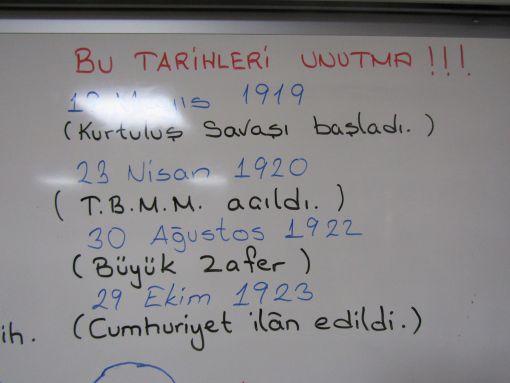 BU TARİHLERİ UNUTMA !!!
19 Mayıs 1919
(Kurtuluş Savaşı başladı.)
23 Nisan 1920
( T.B.M.M. açıldı. )
30 Ağustos 1922
(Büyük Zafer )
29 Ekim 1923
ih. (Cumhuriyet ilân edildi.)